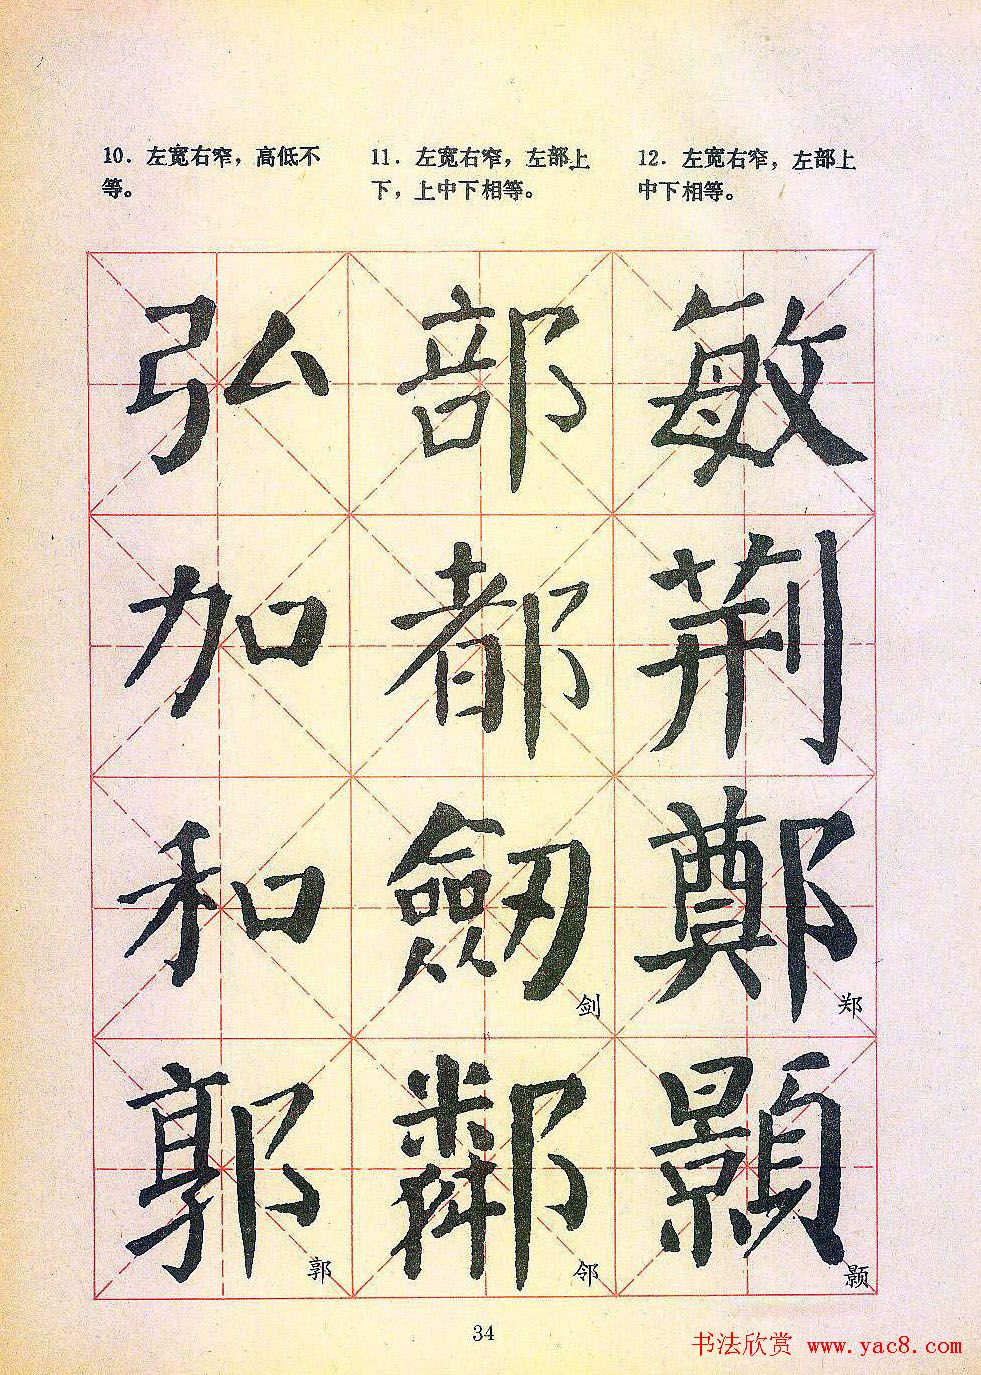 10. 左宽右窄，高低不
等。
11. 左宽右窄，左部上
下，上中下相等。
12. 左宽右窄，左部上
中下相等。
弘 部 敏
加 都 荆
和 劒 鄭
剑 郑
郭 鄰 顥
郭 邻 颢
34
书法欣赏 www.yac8.com